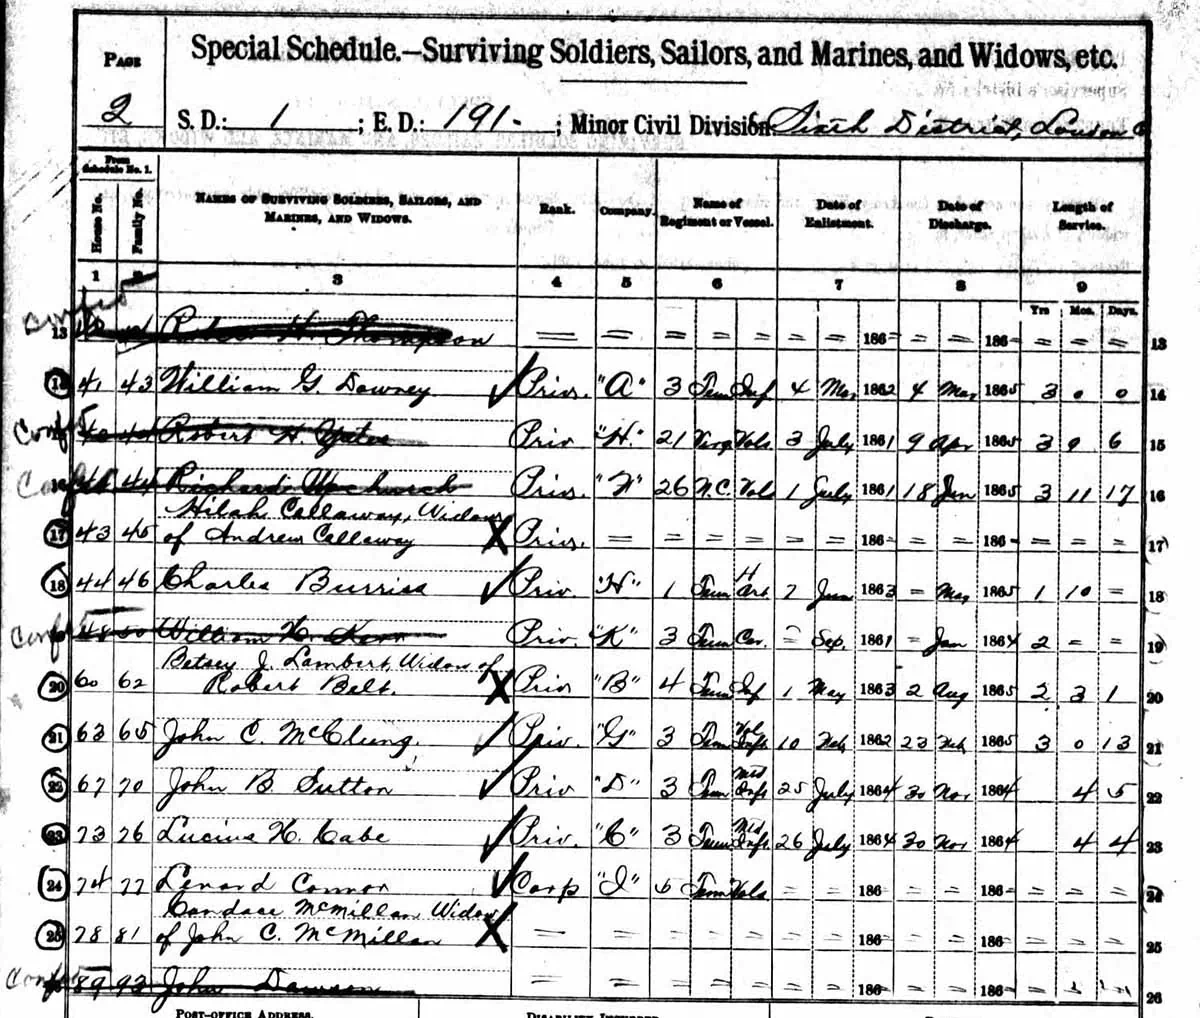 Page
Special Schedule.—Surviving Soldiers, Sailors, and Marines, and Widows, etc.
2
S. D.: 1 ; E. D.: 191- ; Minor Civil Division: Sixth District, Loudon Co
From Schedule No. 1.
House No. Family No. Names of Surviving Soldiers, Sailors, and Marines, and Widows. Rank. Company. Name of Regiment or Vessel. Date of Enlistment. Date of Discharge. Length of Service.
1 2 3 4 5 6 7 8 9
Yrs Mos. Days.
Confed
13 H. Thompson = = = = = = = 186 = = 186 = = = 13
14 41 43 William G. Downey ✓ Priv. "A" 3 Tenn Inf 4 Mar 1862 4 Mar 1865 3 0 0 14
Conf Robert H. Yates Priv "H." 21 Virg Vols 3 July 1861 9 Apr 1865 3 9 6 15
16 44 Richard Upchurch Priv. 26 N.C. Vols 1 July 1861 18 Jun 1865 3 11 17 16
Hilah Callaway, Widow
17 43 45 of Andrew Callaway X Priv. = = = = = = 186 = = 186 = = = 17
18 44 46 Charles Burriss ✓ Priv. "H" 1 Tenn H Art 7 Jun 1863 = May 1865 1 10 = 18
Conf 48 50 William K. Kerr Priv. "K" 3 Tenn Cav. = Sep. 1861 = Jan 1864 2 = = 19
Betsey J. Lambert, Widow of
20 60 62 Robert Belt. X Priv "B" 4 Tenn Inf 1 May 1863 2 Aug 1865 2 3 1 20
21 63 65 John C. McClung. ✓ Priv. "G" 3 Tenn Vol Inft 10 Feb 1862 23 Feb 1865 3 0 13 21
22 67 70 John B Sutton ✓ Priv "D" 3 Tenn Mtd Inft 25 July 1864 30 Nov 1864 4 5 22
23 73 76 Lucius K. Cabe ✓ Priv. "C" 3 Tenn Mtd Inft. 26 July 1864 30 Nov 1864 4 4 23
24 74 77 Lenard Connor ✓ Corp "I" 5 Tenn Vols = = 186 = = 186 = = = 24
Candace McMillan Widow
25 78 81 of John C. McMillan X = = = = = = = 186 = = 186 = = = 25
Conf 89 93 John Dawson = = = = = = = 186 = = 186 26
Post-office Address. Disability Incurred.